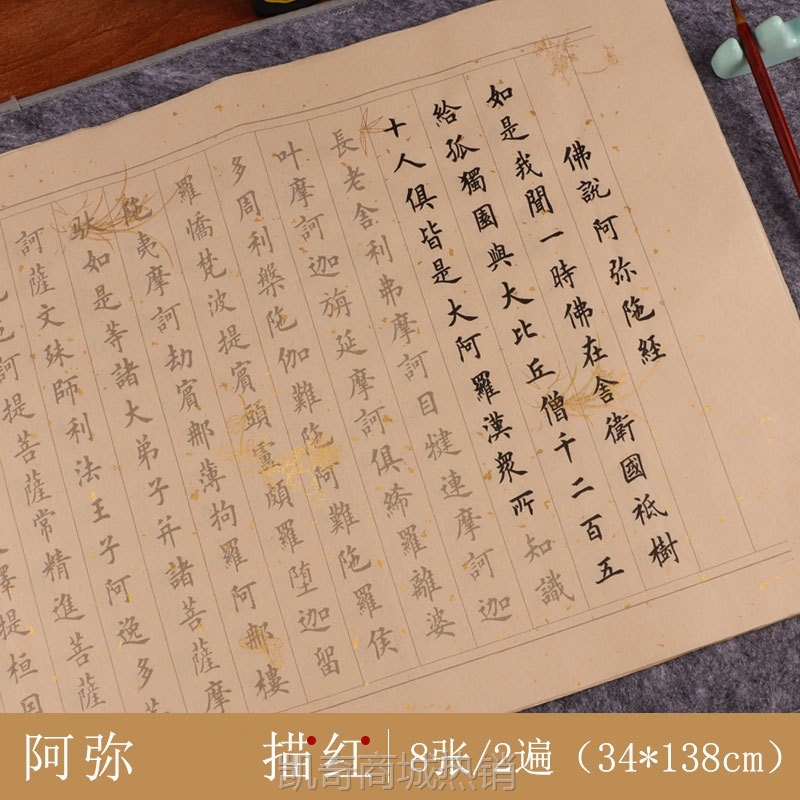 佛說阿弥陁經
如是我聞一時佛在舍衛國祇樹
給孤獨園與大比丘僧千二百五
十人俱皆是大阿羅漢衆所知識
長老舍利弗摩訶目犍連摩訶迦
叶摩訶迦旃延摩訶俱絺羅離婆
多周利槃陁伽難陁阿難陁羅侯
羅憍梵波提賓頭盧頗羅堕迦留
陁夷摩訶劫賓那薄拘羅阿那樓
馱如是等諸大弟子并諸菩薩摩
訶薩文殊師利法王子阿逸多菩
訶提菩薩常精進菩薩
提桓因
阿弥 描红 8张/2遍（34*138cm）
凯奇商城热销